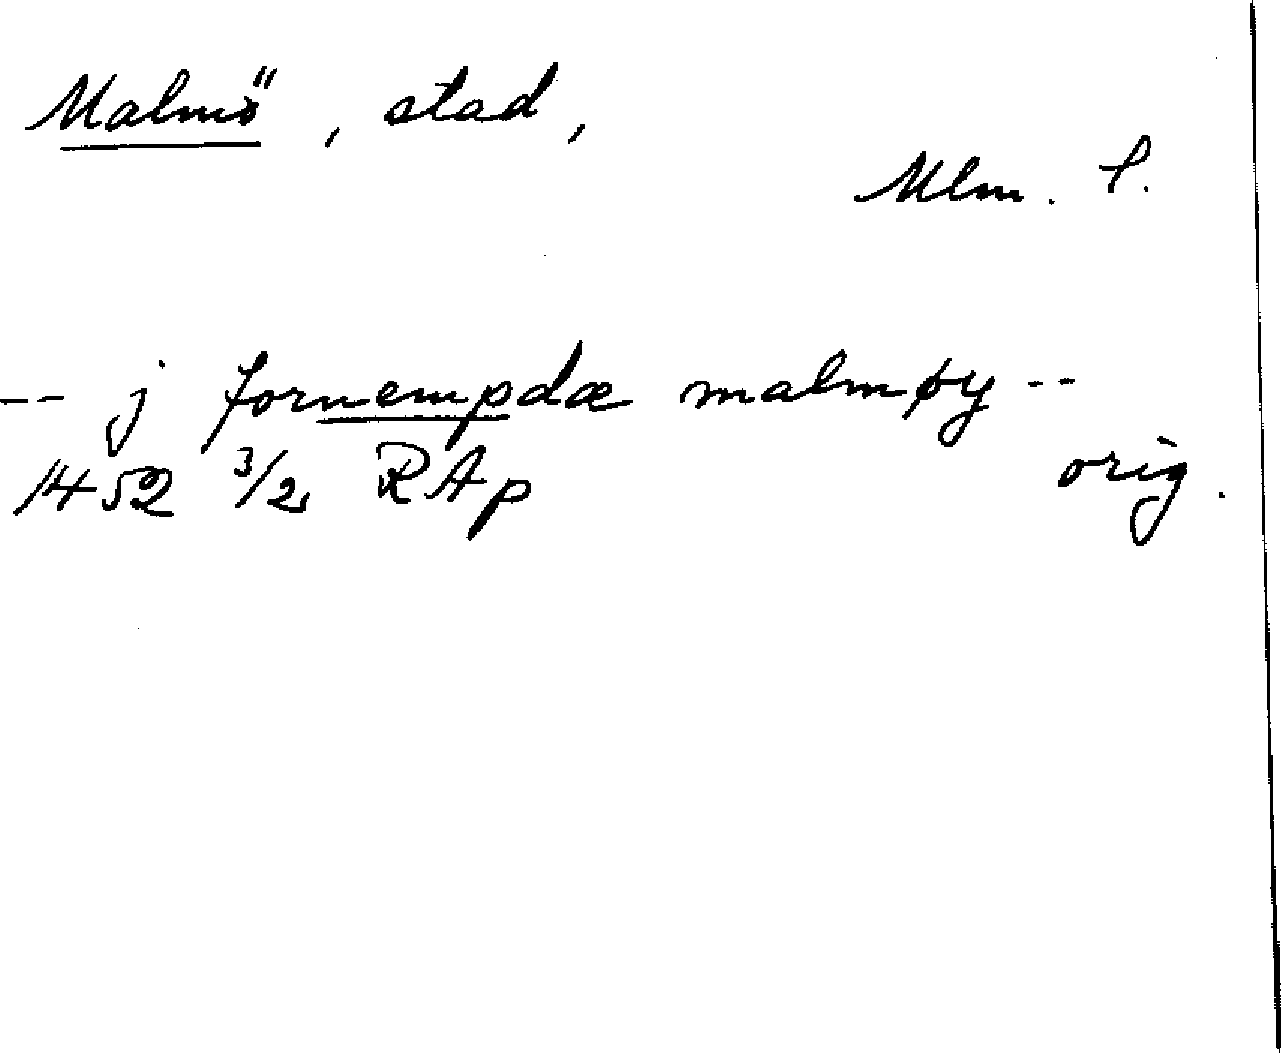 Malmö, stad,
Mlm. l.
-- j fornempdæ malmøy --
1452 3/2 RAp orig.